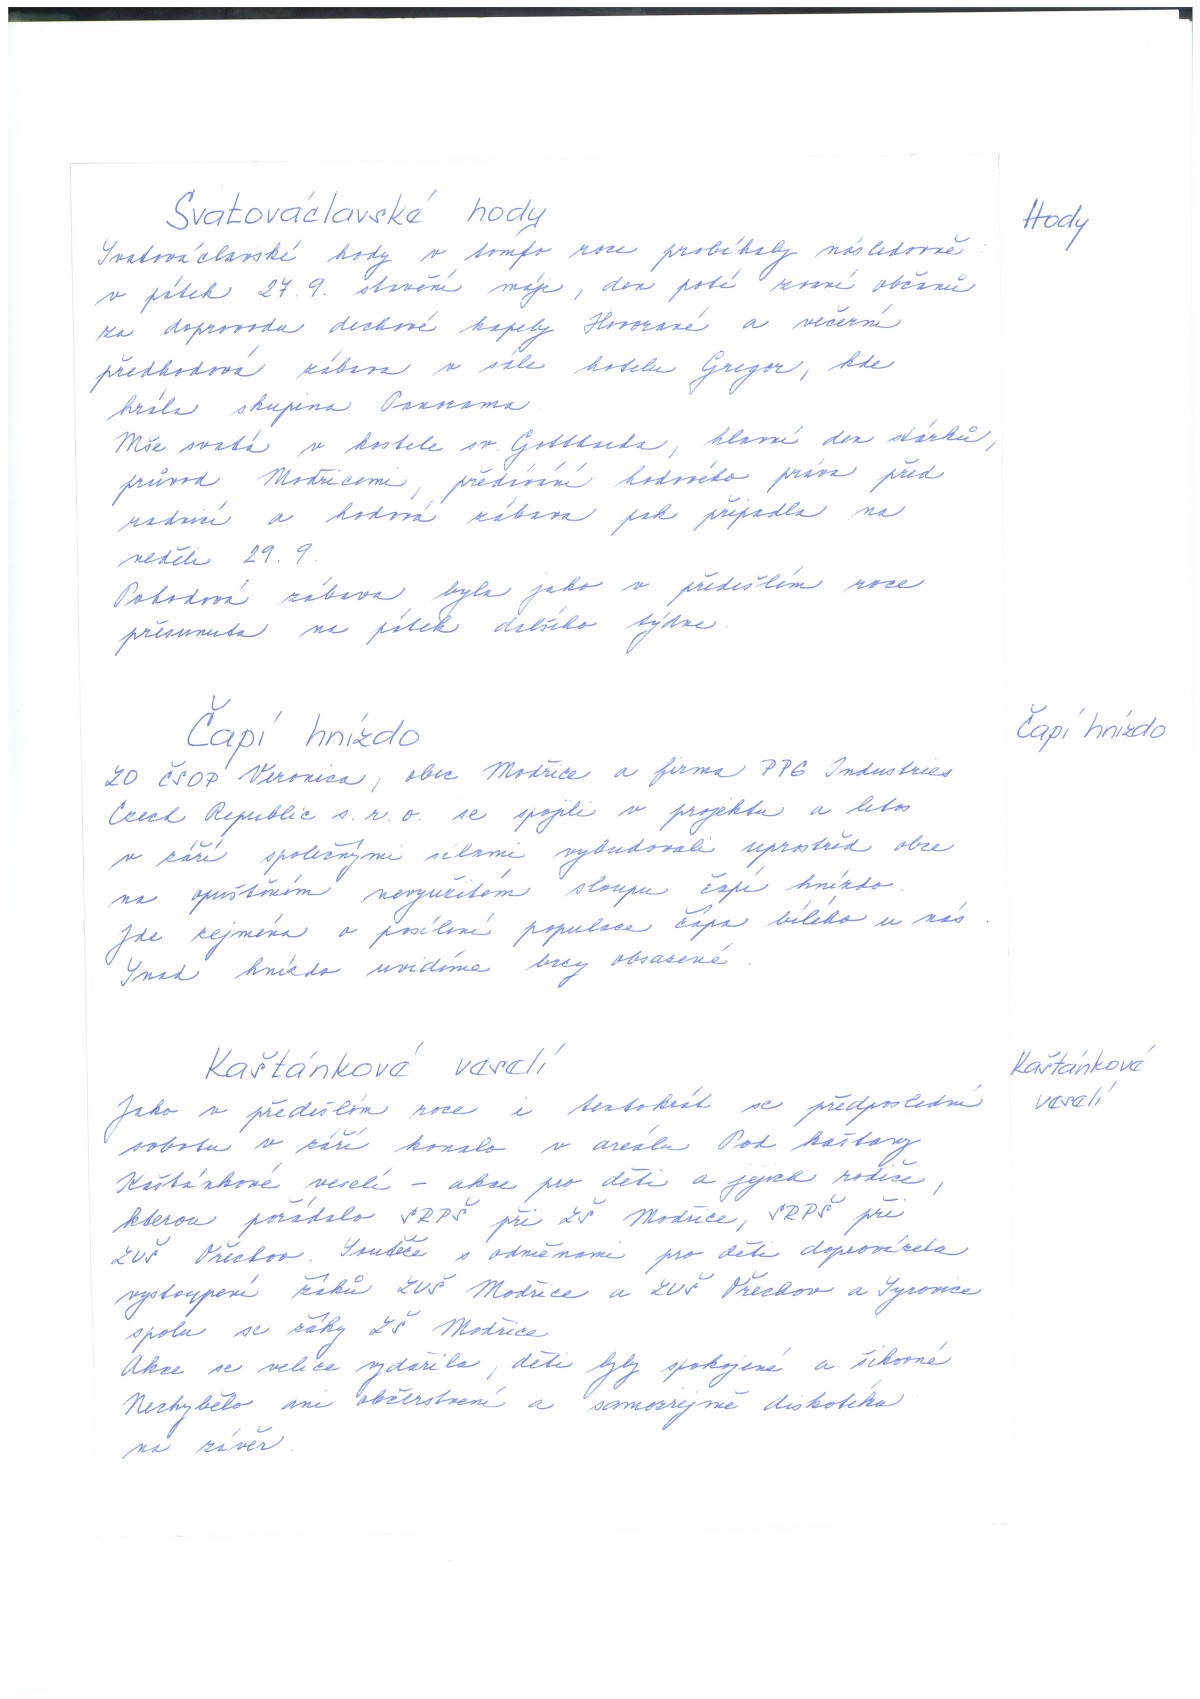 Svatováclavské hody
Hody
Svatováclavské hody v tomto roce probíhaly následovně:
v pátek 27. 9. stavění máje, den poté zvaní občanů
za doprovodu dechové kapely Hovorané a večerní
předhodová zábava v sále hotelu Gregor, kde
hrála skupina Panorama
Mše svatá v kostele sv. Gottharda, hlavní den stárků,
průvod Modřicemi, předávání hodového práva před
radnicí a hodová zábava pak připadla na
neděli 29. 9.
Pohodová zábava byla jako v předešlém roce
přesunuta na pátek dalšího týdne.
Čapí hnízdo
Čapí hnízdo
ZO ČSOP Veronica, obec Modřice a firma PPG Industries
Czech Republic s. r. o. se spojili v projektu a letos
v září společnými silami vybudovali uprostřed obce
na opuštěném nevyužitém sloupu čapí hnízdo.
Jde zejména o posílení populace čápa bílého u nás.
Snad hnízdo uvidíme brzy obsazené.
Kaštánkové veselí
Kaštánkové
veselí
Jako v předešlém roce i tentokrát se předposlední
sobotu v září konalo v areálu Pod kaštany
Kaštánkové veselí – akce pro děti a jejich rodiče,
kterou pořádalo SRPŠ při ZŠ Modřice, SRPŠ při
ZUŠ Ořechov. Soutěže s odměnami pro děti doprovázela
vystoupení žáků ZUŠ Modřice a ZUŠ Ořechov a Syrovice
spolu se žáky ZŠ Modřice
Akce se velice vydařila, děti byly spokojené a šikovné.
Nechybělo ani občerstvení a samozřejmě diskotéka
na závěr.